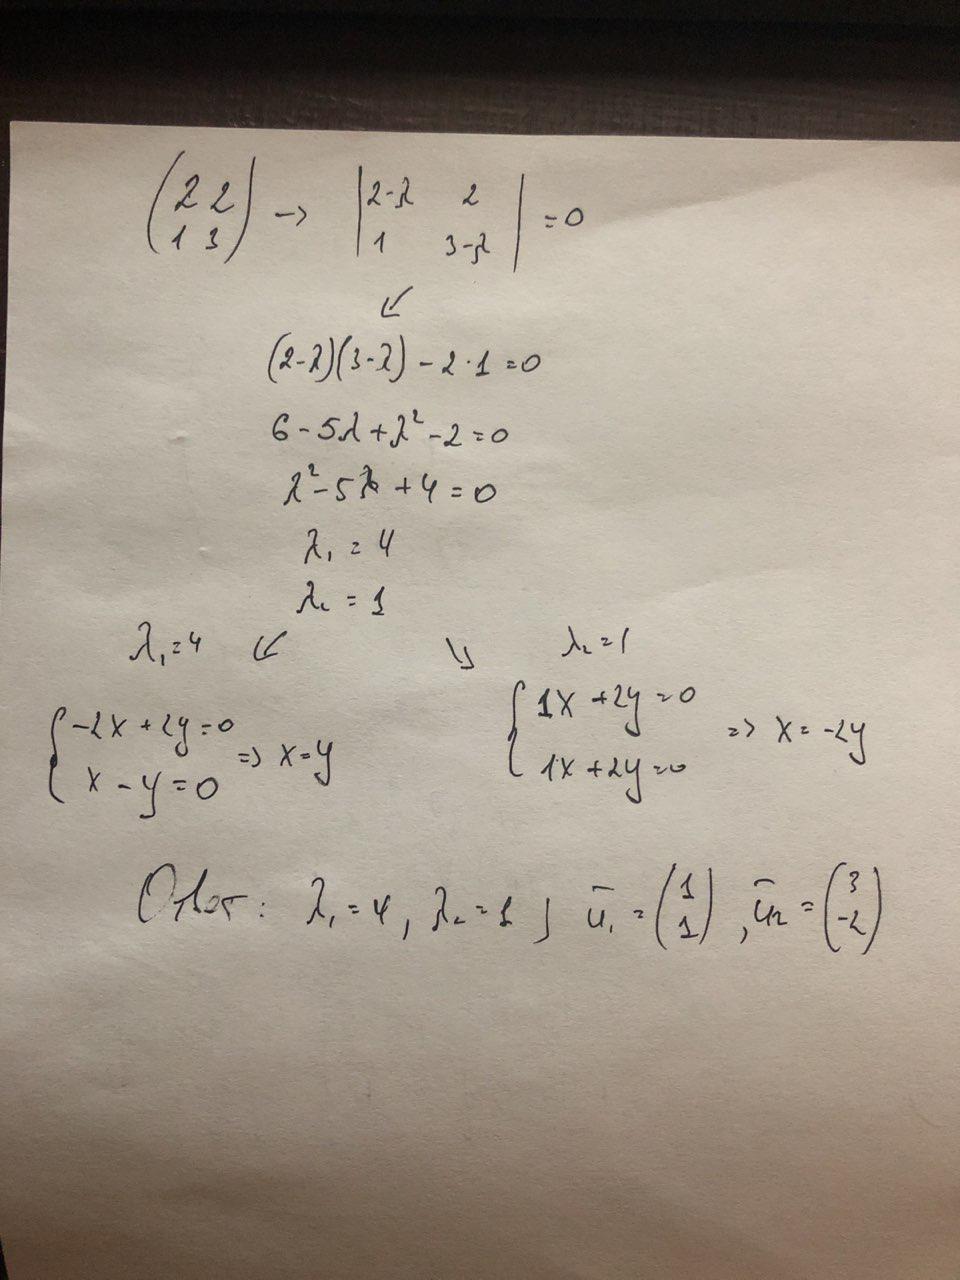 (2 2
1 3) -> |2-λ 2
1 3-λ| = 0
↙
(2-λ)(3-λ) - 2·1 = 0
6 - 5λ + λ² - 2 = 0
λ² - 5λ + 4 = 0
λ₁ = 4
λ₂ = 1
λ₁ = 4 ↙ ↘ λ₂ = 1
{-2x + 2y = 0
x - y = 0 => x = y
{1x + 2y = 0
1x + 2y = 0 => x = -2y
Ответ: λ₁ = 4, λ₂ = 1; ū₁ = (1
1), ū₂ = (3
-2)